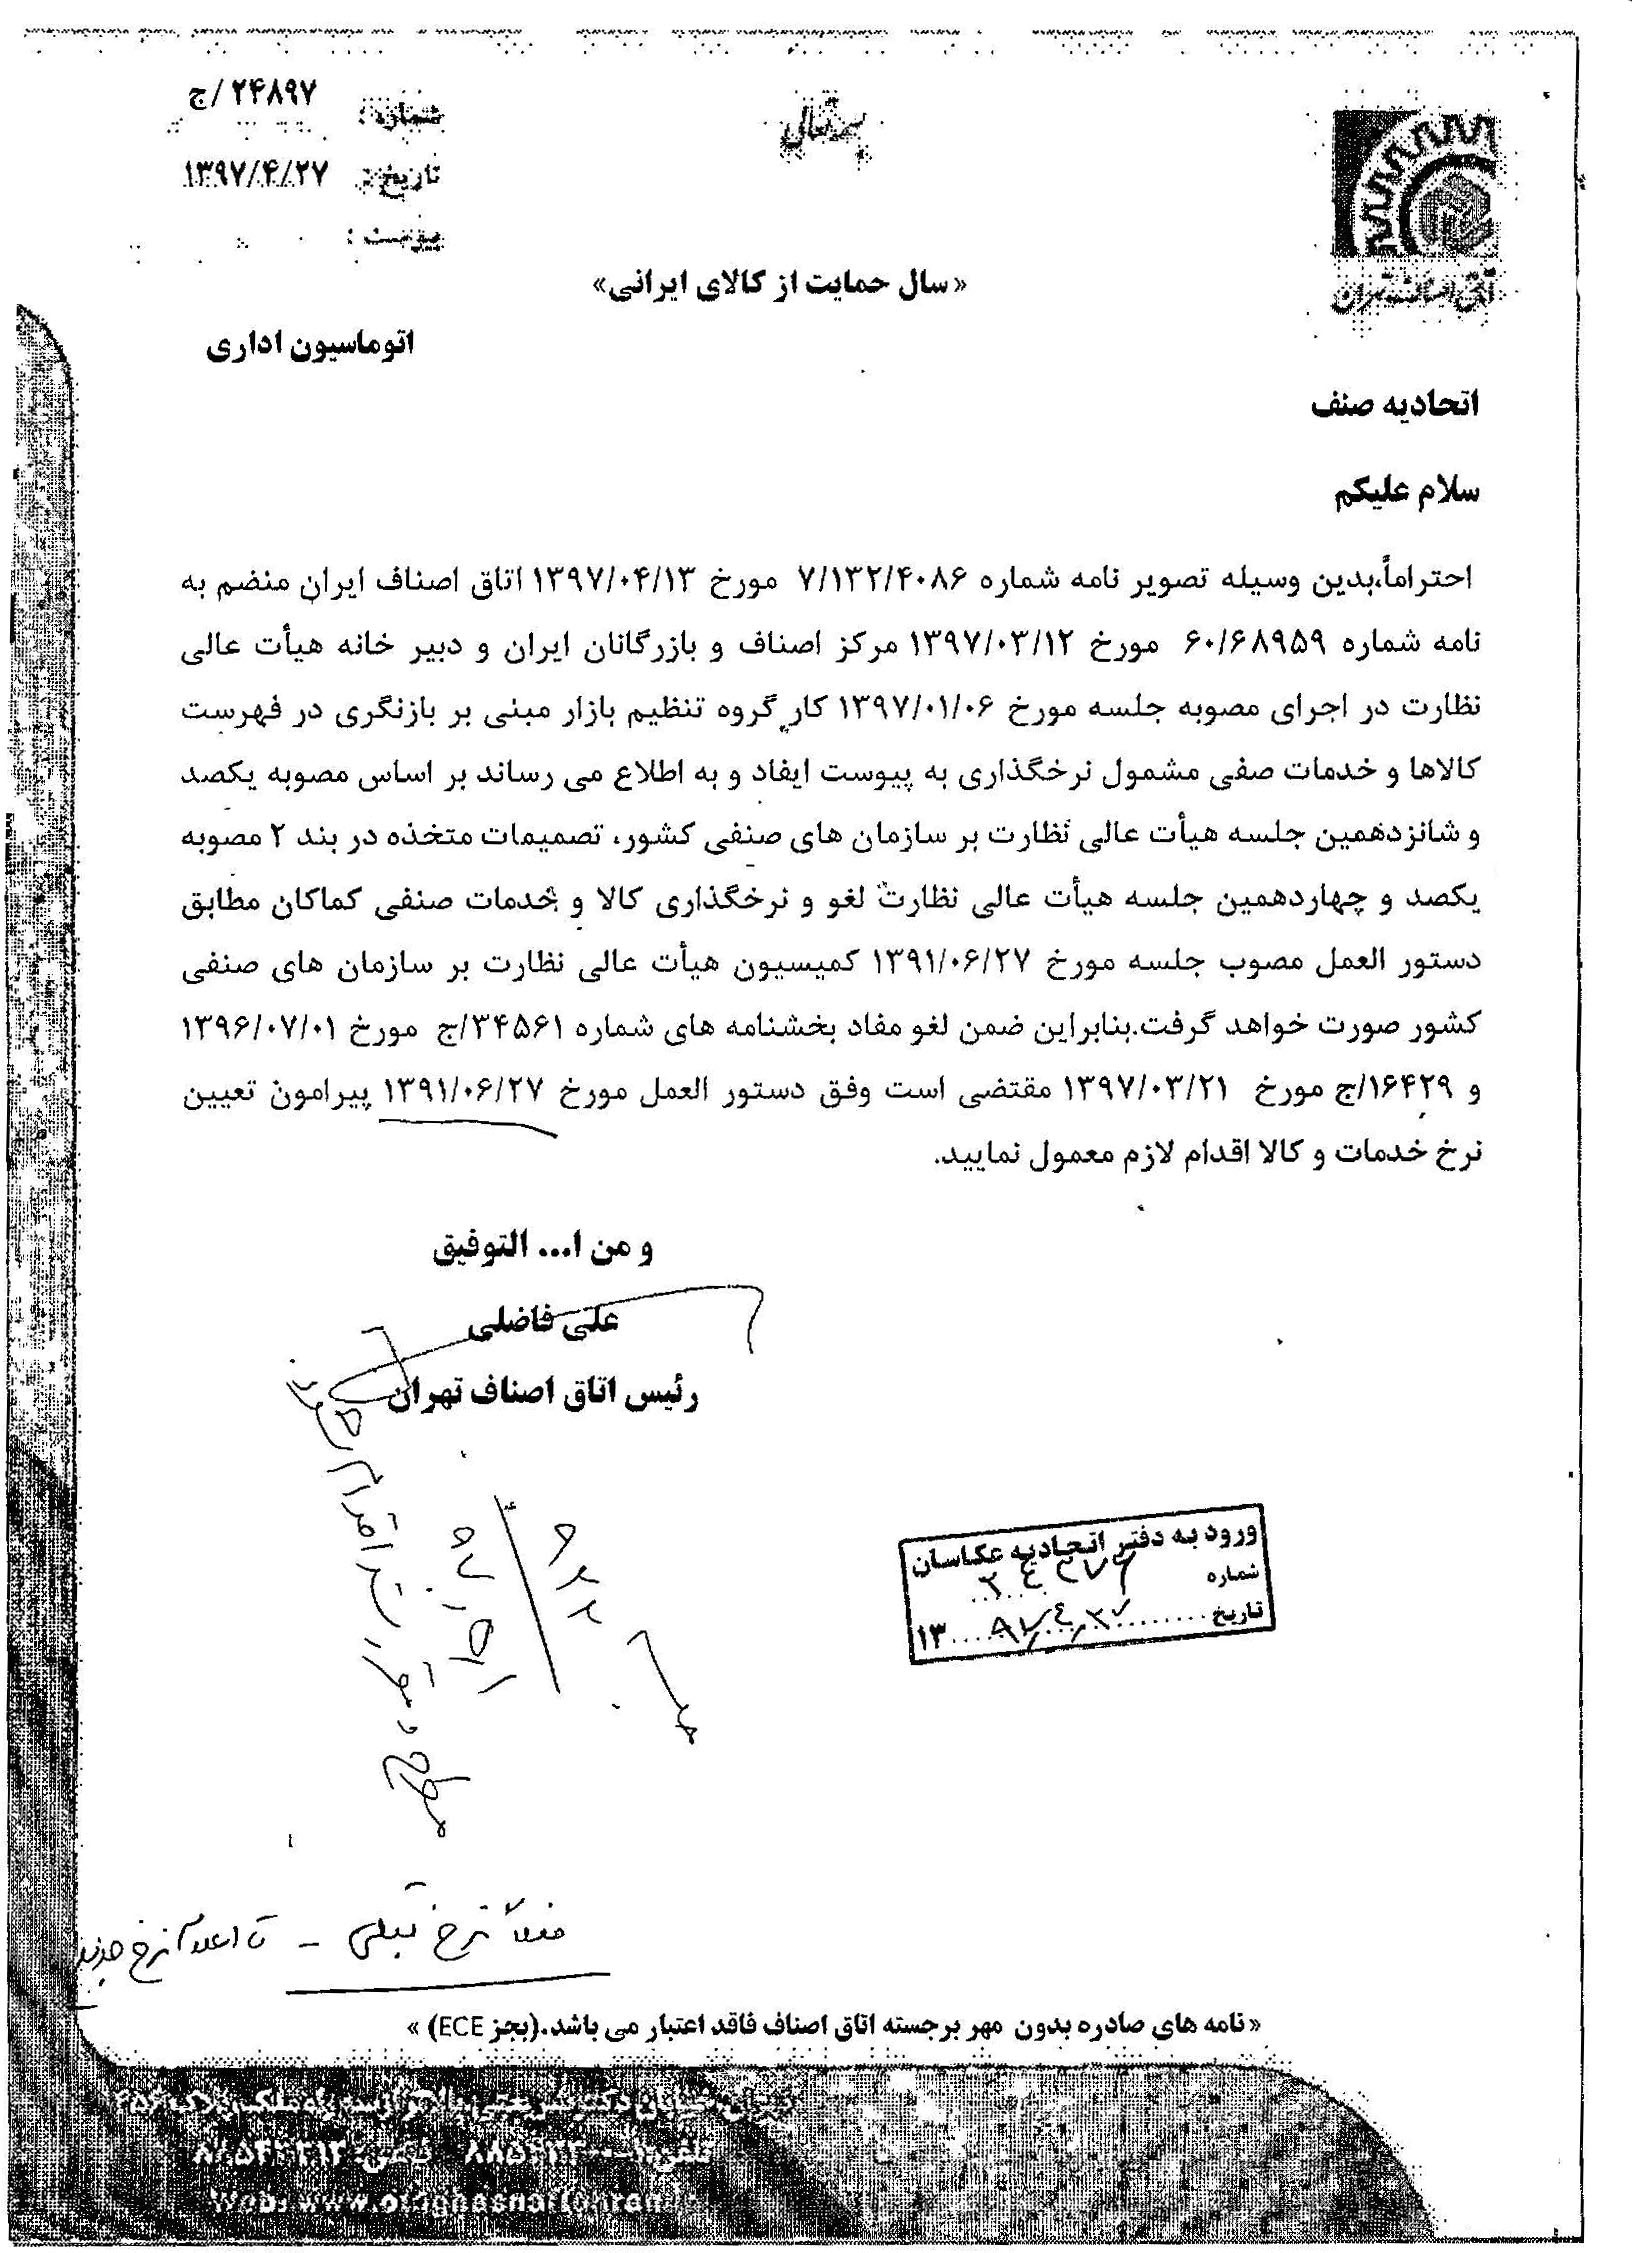 بسمه تعالی
شماره : ۲۴۸۹۷/ج
تاریخ : ۱۳۹۷/۴/۲۷
پیوست :
اتاق اصناف تهران
«سال حمایت از کالای ایرانی»
اتوماسیون اداری
اتحادیه صنف
سلام علیکم
احتراماً،بدین وسیله تصویر نامه شماره ۷/۱۳۲/۴۰۸۶ مورخ ۱۳۹۷/۰۴/۱۳ اتاق اصناف ایران منضم به
نامه شماره ۶۰/۶۸۹۵۹ مورخ ۱۳۹۷/۰۳/۱۲ مرکز اصناف و بازرگانان ایران و دبیر خانه هیأت عالی
نظارت در اجرای مصوبه جلسه مورخ ۱۳۹۷/۰۱/۰۶ کار گروه تنظیم بازار مبنی بر بازنگری در فهرست
کالاها و خدمات صفی مشمول نرخگذاری به پیوست ایفاد و به اطلاع می رساند بر اساس مصوبه یکصد
و شانزدهمین جلسه هیأت عالی نظارت بر سازمان های صنفی کشور، تصمیمات متخذه در بند ۲ مصوبه
یکصد و چهاردهمین جلسه هیأت عالی نظارت لغو و نرخگذاری کالا و خدمات صنفی کماکان مطابق
دستور العمل مصوب جلسه مورخ ۱۳۹۱/۰۶/۲۷ کمیسیون هیأت عالی نظارت بر سازمان های صنفی
کشور صورت خواهد گرفت.بنابراین ضمن لغو مفاد بخشنامه های شماره ۳۴۵۶۱/ج مورخ ۱۳۹۶/۰۷/۰۱
و ۱۶۴۲۹/ج مورخ ۱۳۹۷/۰۳/۲۱ مقتضی است وفق دستور العمل مورخ ۱۳۹۱/۰۶/۲۷ پیرامون تعیین
نرخ خدمات و کالا اقدام لازم معمول نمایید.
و من ا... التوفیق
علی فاضلی
رئیس اتاق اصناف تهران
ورود به دفتر اتحادیه عکاسان
شماره
تاریخ ۱۳ ۹۷,۴,۲۷
فعلاً نرخ قبلی - تا اعلام نرخ جدید
«نامه های صادره بدون مهر برجسته اتاق اصناف فاقد اعتبار می باشد.(بجز ECE) »